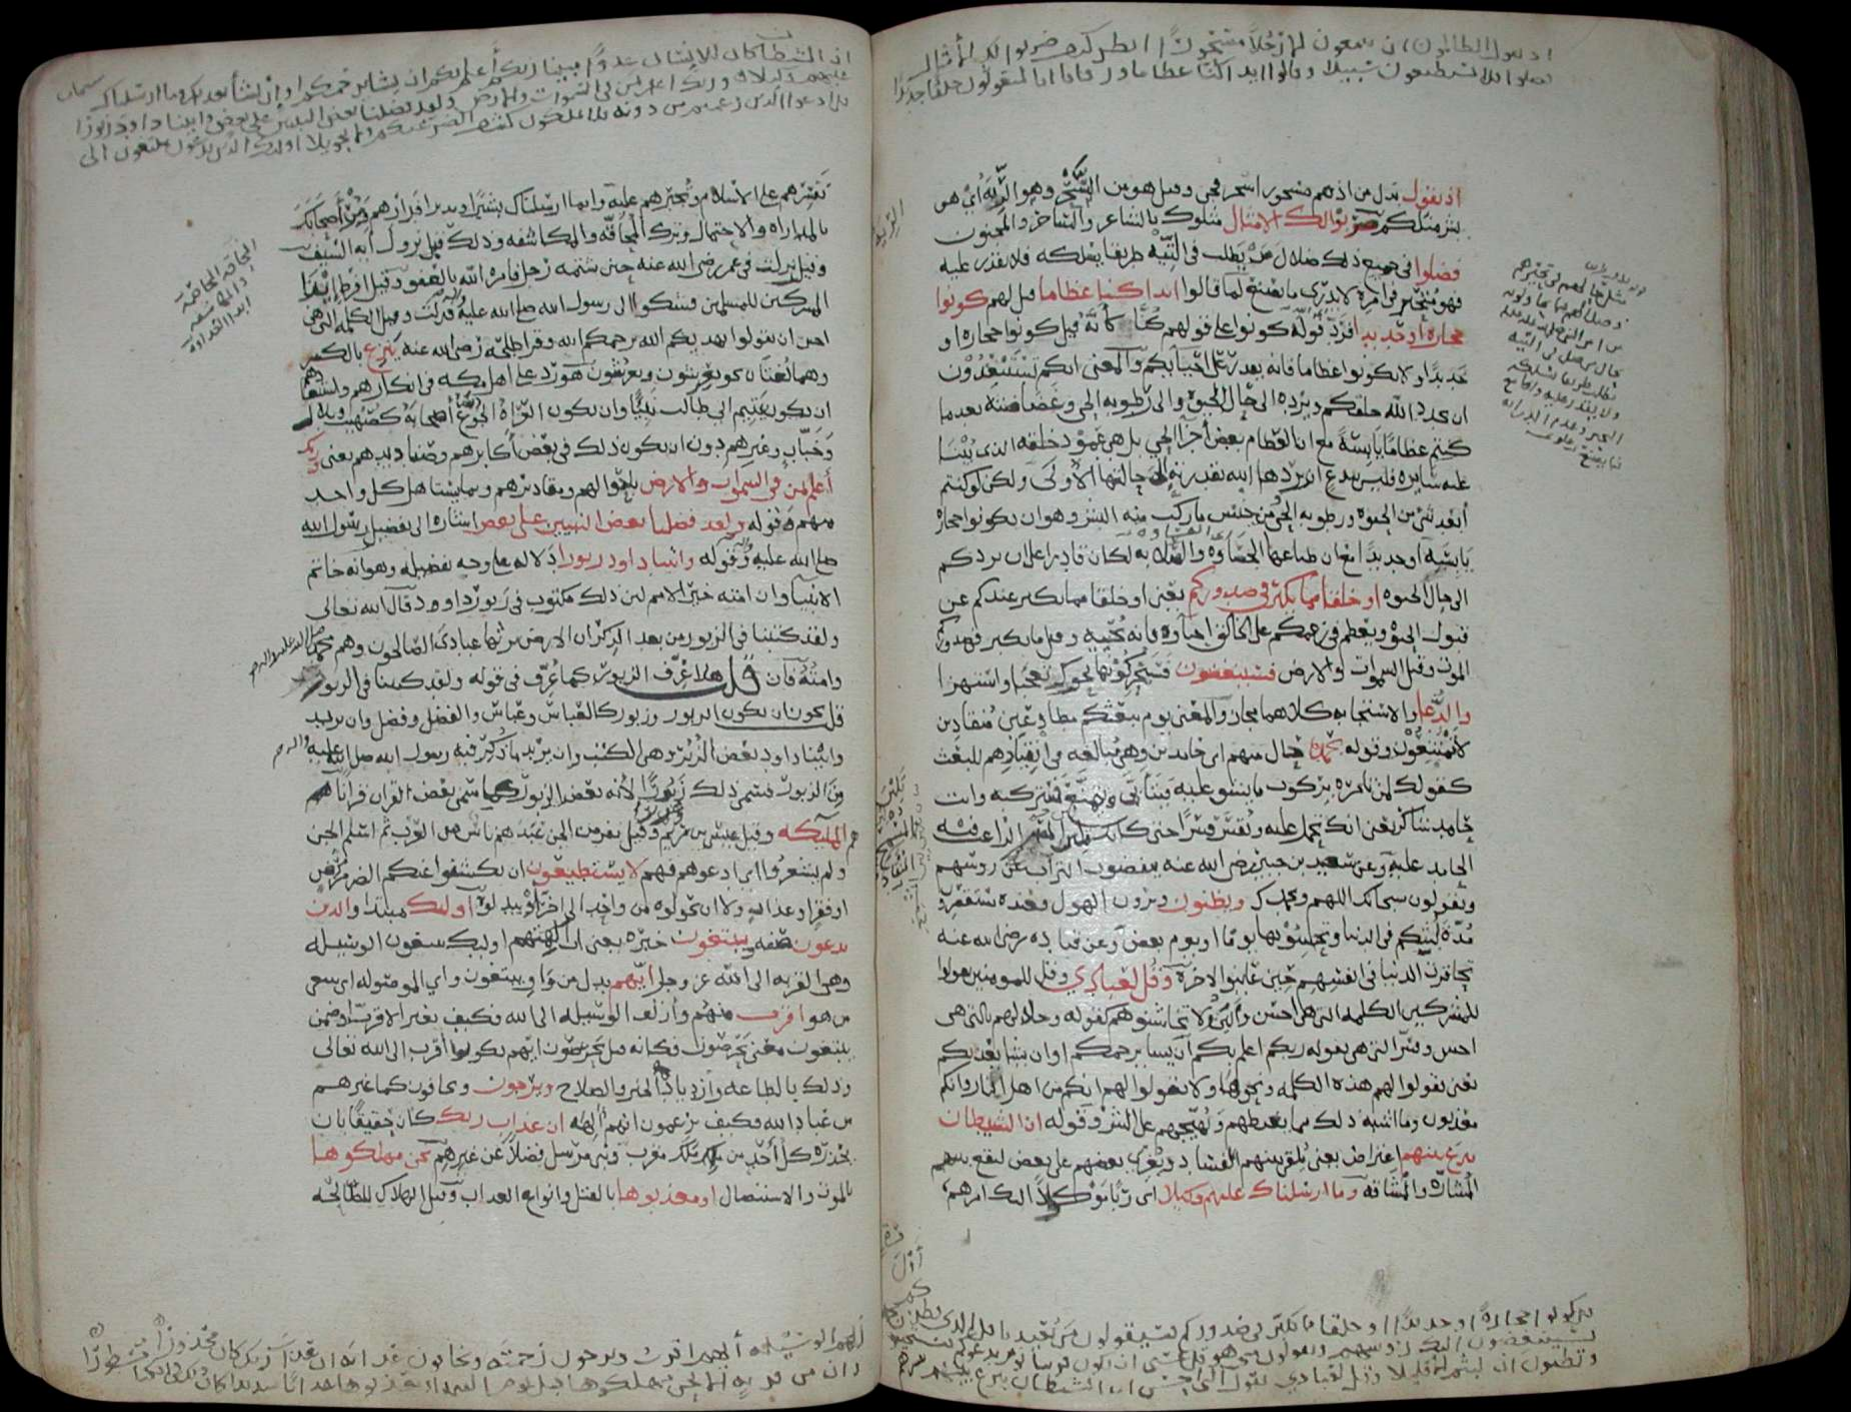 اذ يقول الظالمون ان تتبعون الا رجلا مسحورا انظر كيف ضربوا لك الأمثال
فضلوا فلا يستطيعون سبيلا وقالوا ائذا كنا عظاما ورفاتا ائنا لمبعوثون خلقا جديدا
اذ يقول بدل من اذ هم مسحورا سحر فجن وقيل هو من السحر وهو الرئة أي هو
بشر مثلكم ضربوا لك الامثال مثلوك بالشاعر والساحر والمجنون
فضلوا في جميع ذلك ضلال من يطلب في التيه طريقا يسلكه فلا يقدر عليه
فهو متحير في امره لا يدري ما يصنع لما قالوا ائذا كنا عظاما قيل لهم كونوا
حجارة او حديدا فرد قوله كونوا على قولهم كنا كأنه قيل كونوا حجارة او
حديدا ولا تكونوا عظاما فانه يقدر على احيائكم والمعنى انكم تستبعدون
ان يجدد الله خلقكم ويرده الى حال الحيوة والى رطوبة الحي وغضاضته بعدما
كنتم عظاما يابسة مع ان العظام بعض أجزاء الحي بل هي عمود خلقه الذي يبنى
عليه سايره فليس ببدع ان يردها الله بقدرته الى حالتها الأولى ولكن لو كنتم
أبعد شيء من الحيوة ورطوبة الحي ومن جنس ما ركب منه البشر وهو ان تكونوا حجارة
يابسة او حديدا مع ان طباعها الجساوة والصلابة لكان قادرا على ان يردكم
الى حال الحيوة او خلقا مما يكبر في صدوركم يعني او خلقا مما يكبر عندكم عن
قبول الحيوة ويعظم في زعمكم على الخالق احياؤه فانه يحييه وقيل ما يكبر في صدورهم
الموت وقيل السموات والارض فسينغضون فسيحركون نحوك تعجبا واستهزاء
والدعاء والاستجابة كلاهما مجاز والمعنى يوم يبعثكم مطاوعين منقادين
لا تمتنعون وقوله بحمده حال منهم اى حامدين وهي مبالغة في انقيادهم للبعث
كقولك لمن تامره بركوب ما يشق عليه فيتأبى ويتمنع ستركبه وانت
حامد شاكر يعني انك تحمل عليه وتقسر قسرا حتى كانك تلين لين الراغب فيه
الحامد عليه وعن سعيد بن جبير رضي الله عنه ينفضون التراب عن روسهم
ويقولون سبحانك اللهم وبحمدك وتظنون وترون الهول فعنده تستقصرون
مدة لبثكم في الدنيا وتحسبونها يوما او بعض يوم وعن قتادة رضي الله عنه
تحاقرت الدنيا في انفسهم حين عاينوا الاخرة وقل لعبادي وقل للمومنين يقولوا
للمشركين الكلمة التي هي احسن وألين ولا تخاشنوهم كقوله وجادلهم بالتي هي
احسن وفسر التي هي بقوله ربكم اعلم بكم ان يشا يرحمكم او ان يشا يعذبكم
يعني يقولوا لهم هذه الكلمة ونحوها ولا يقولوا لهم انكم من اهل النار وانكم
معذبون وما اشبه ذلك مما يغيظهم ويهيجهم على الشر وقوله ان الشيطان
ينزغ بينهم اعتراض يعني يلقي بينهم الفساد ويغري بعضهم على بعض ليقع بينهم
المشارة والمشاقة وما ارسلناك عليهم وكيلا اى ربا موكولا اليك امرهم
قل كونوا حجارة او حديدا او خلقا مما يكبر في صدوركم فسيقولون من يعيدنا قل الذي فطركم
فسينغضون اليك روسهم ويقولون متى هو قل عسى ان يكون قريبا يوم يدعوكم
وتظنون ان لبثتم الا قليلا وقل لعبادي يقولوا التي هي احسن ان الشيطان ينزغ بينهم
ان الشيطان كان للانسان عدوا مبينا ربكم أعلم بكم ان يشا يرحمكم او ان يشأ يعذبكم وما ارسلناك
عليهم وكيلا وربك اعلم بمن في السموات والارض ولقد فضلنا بعض النبيين على بعض وآتينا داود زبورا
قل ادعوا الذين زعمتم من دونه فلا يملكون كشف الضر عنكم ولا تحويلا اولئك الذين يدعون يبتغون الى
تقسرهم على الاسلام وتجبرهم عليه وانما ارسلناك بشيرا ونذيرا فدارهم ومر أصحابك
بالمداراة والاحتمال وترك المحاقة والمكاشفة وذلك قبل نزول آية السيف
وقيل نزلت في عمر رضي الله عنه حين شتمه رجل فامره الله بالعفو وقيل افرط ايذاء
المشركين للمسلمين فشكوا الى رسول الله صلى الله عليه فنزلت وقيل الكلمة التي هي
احسن ان يقولوا يهديكم الله يرحمكم الله وقرا طلحة رضي الله عنه ينزغ بالكسر
وهما لغتان نحو يعرشون ويعرشون هو رد على اهل مكة في انكارهم واستبعادهم
ان يكون يتيم ابي طالب نبيا وان يكون العراة الجوع أصحابه كصهيب وبلال
وخباب وغيرهم دون ان يكون ذلك في بعض أكابرهم وصناديدهم يعني وربك
أعلم بمن في السموات والارض باحوالهم ومقاديرهم وبما يستاهل كل واحد
منهم وقوله ولقد فضلنا بعض النبيين على بعض اشارة الى تفضيل رسول الله
صلى الله عليه وقوله واتينا داود زبورا دلالة على وجه تفضيله وهو انه خاتم
الانبيا وان امته خير الامم لان ذلك مكتوب في زبور داود قال الله تعالى
ولقد كتبنا في الزبور من بعد الذكر ان الارض يرثها عبادي الصالحون وهم محمد
وامته فان قلت هلا عرف الزبور كما عرف في قوله ولقد كتبنا في الزبور
قلت يجوز ان يكون الزبور وزبور كالعباس وعباس والفضل وفضل وان يريد
واتينا داود بعض الزبر وهي الكتب وان يريد ما ذكر فيه رسول الله صلى الله عليه
من الزبور فسمى ذلك زبورا لأنه بعض الزبور كما سمى بعض القرآن قرانا
هم الملائكة وقيل عيسى بن مريم وعزير وقيل نفر من الجن عبدهم ناس من العرب ثم اسلم الجن
ولم يشعروا اى ادعوهم فهم لا يستطيعون ان يكشفوا عنكم الضر من مرض
او فقر او عذاب ولا ان يحولوه من واحد الى اخر او يبدلوه أولئك مبتدا والذين
يدعون صفة ويبتغون خبره يعني ان آلهتهم اولئك يبتغون الوسيلة
وهي القربة الى الله عز وجل أيهم بدل من واو يبتغون واي الموصولة اى يبتغي
من هو اقرب منهم وأزلف الوسيلة الى الله فكيف بغير الاقرب او ضمن
يبتغون معنى يحرصون فكانه قيل يحرصون ايهم يكون أقرب الى الله تعالى
وذلك بالطاعة وازدياد الخير والصلاح ويرجون ويخافون كما غيرهم
من عباد الله فكيف يزعمون انهم آلهة ان عذاب ربك كان حقيقا بان
يحذره كل أحد من ملك مقرب ونبي مرسل فضلا عن غيرهم نحن مهلكوها
بالموت والاستئصال او معذبوها بالقتل وانواع العذاب وقيل الهلاك للصالحة
ربهم الوسيلة أيهم اقرب ويرجون رحمته ويخافون عذابه ان عذاب ربك كان محذورا
وان من قرية الا نحن مهلكوها قبل يوم القيمة او معذبوها عذابا شديدا كان ذلك في الكتاب مسطورا